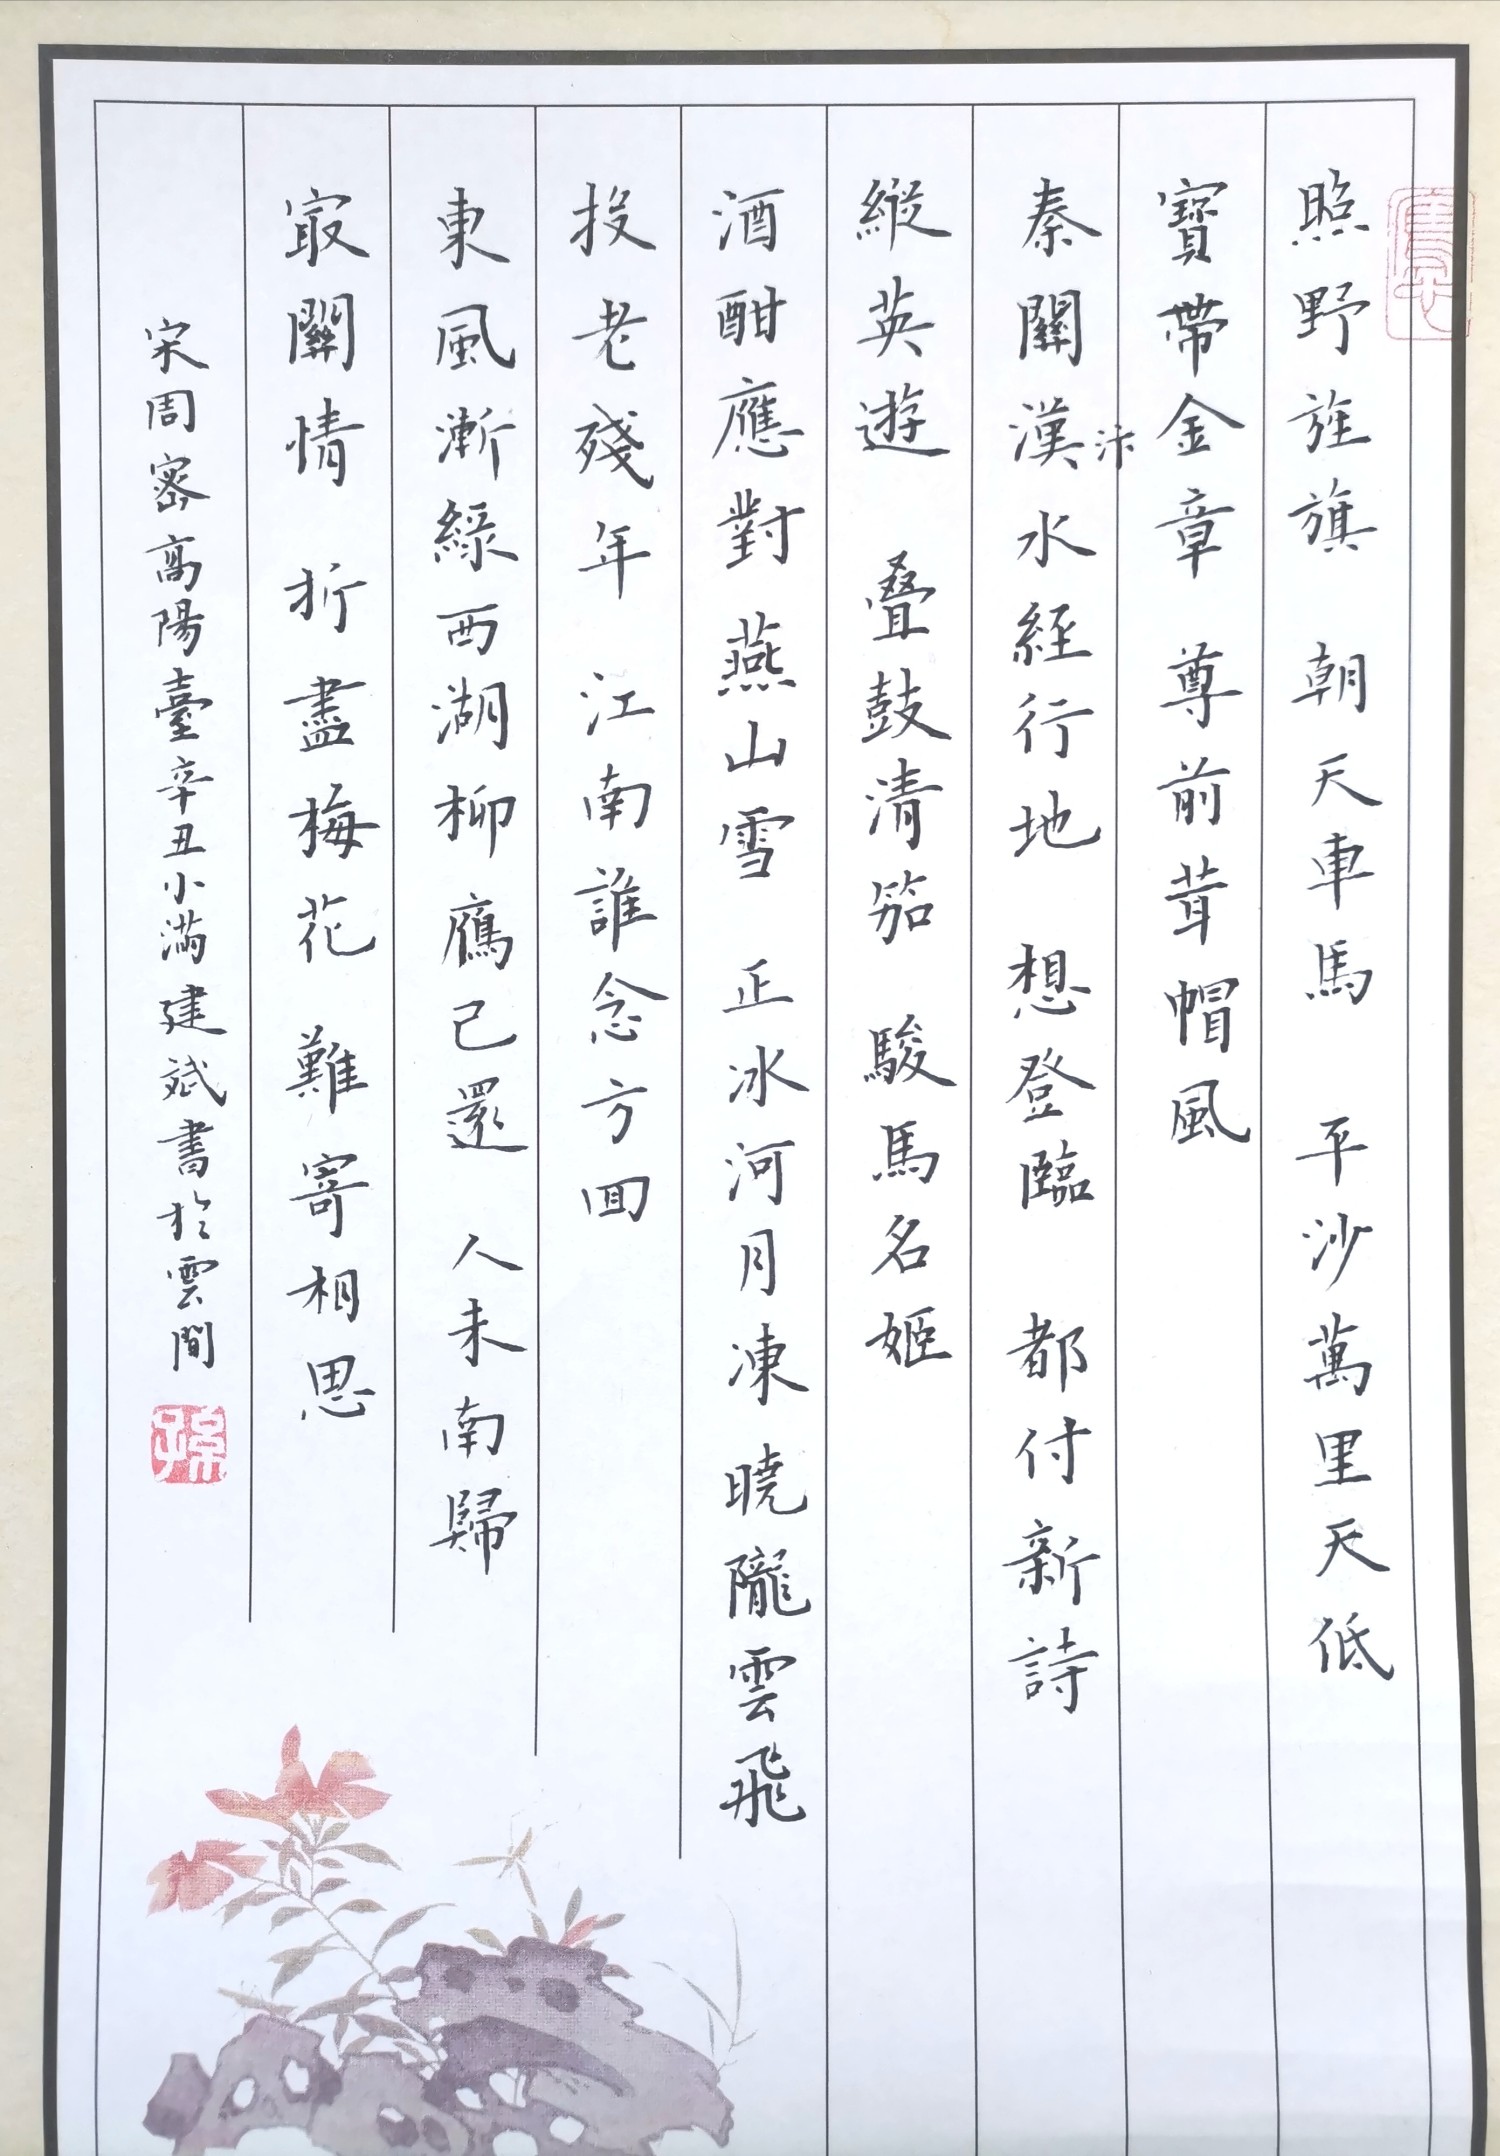 照野旌旗 朝天車馬 平沙萬里天低
寶帶金章 尊前茸帽風
秦關漢汴水經行地 想登臨 都付新詩
縱英遊 疊鼓清笳 駿馬名姬
酒酣應對燕山雪 正冰河月凍 曉隴雲飛
投老殘年 江南誰念方回
東風漸綠西湖柳 鴈已還 人未南歸
最關情 折盡梅花 難寄相思
宋周密高陽臺辛丑小滿建斌書於雲間
孫